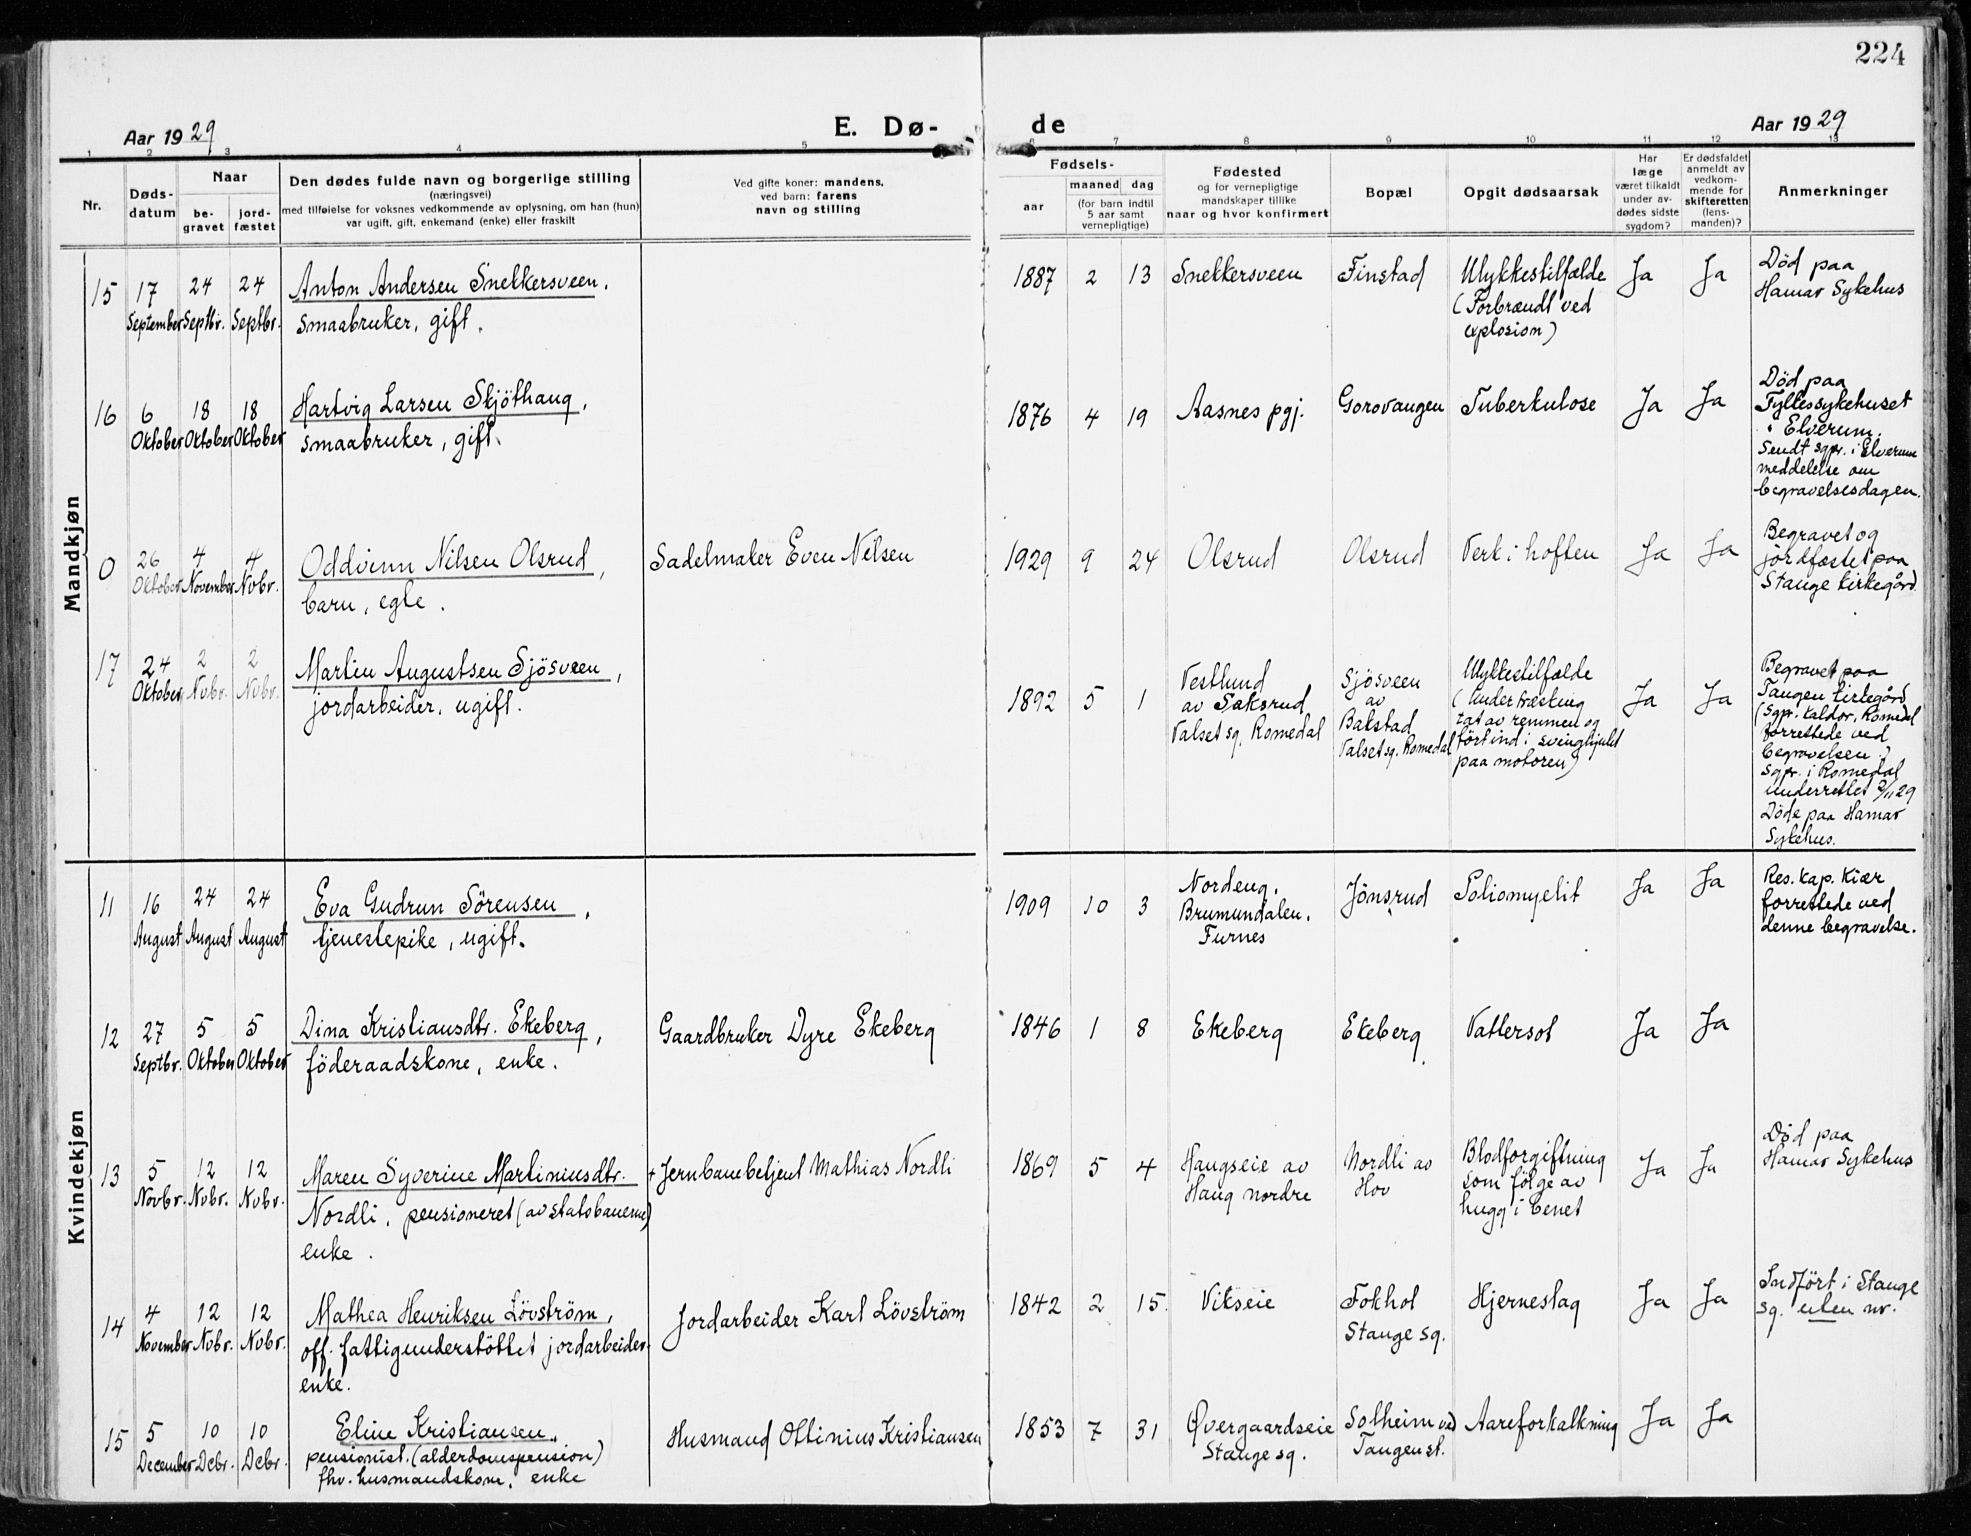 224
Aar 1929
E. Dø-
de
Aar 1929
1 2 3 4 5 6 7 8 9 10 11 12 13
Nr.
Døds-
datum
Naar
be-
gravet
jord-
fæstet
Den dødes fulde navn og borgerlige stilling
(næringsvei)
med tilføielse for voksnes vedkommende av oplysning, om han (hun)
var ugift, gift, enkemand (enke) eller fraskilt
Ved gifte koner: mandens,
ved barn: farens
navn og stilling
Fødsels-
aar
maaned dag
(for barn indtil
5 aar samt
vernepligtige)
Fødested
og for vernepligtige
mandskaper tillike
naar og hvor konfirmert
Bopæl
Opgit dødsaarsak
Har
læge
været tilkaldt
under av-
dødes sidste
sygdom?
Er dødsfaldet
anmeldt av
vedkom-
mende for
skifteretten
(lens-
manden)?
Anmerkninger
Mandkjøn
15
17
September
24
Septbr.
24
Septbr.
Anton Andersen Snekkersveen,
smaabruker, gift.
1887 2 13
Snekkersveen
Finstad
Ulykkestilfælde
(Forbrændt ved
explosion)
Ja
Ja
Død paa
Hamar Sykehus
16
6
Oktober
18
Oktober
18
Oktober
Hartvig Larsen Skjöthaug,
smaabruker, gift.
1876 4 19
Aasnes pgj.
Gorovangen
Tuberkulose
Ja
Ja
Død paa
Fylkessykehuset
i Elverum.
Sendt sgpr. i Elverum
meddelelse om
begravelsesdagen.
0
26
Oktober
4
November
4
Nvbr.
Oddvinn Nilsen Olsrud,
barn, egte.
Sadelmaker Even Nilsen
1929 9 24
Olsrud
Olsrud
Verk i hoften
Ja
Ja
Begravet og
jordfæstet paa
Stange kirkegård
17
24
Oktober
2
Nvbr.
2
Nvbr.
Martin Augustsen Sjösveen,
jordarbeider, ugift.
1892 5 1
Vestlund
av Saksrud
Valset sg. Romedal
Sjösveen
av
Bakstad
Valset sg. Romedal
Ulykkestilfælde
(Under træsking
tat av remmen og
ført ind i svinghjulet
paa motoren)
Ja
Ja
Begravet paa
Tangen kirkegård
(Sgpr. Kaldor, Romedal
forrettede ved
begravelsen.)
Sgpr. i Romedal
underrettet 2/11 29
Døde paa Hamar
Sykehus.
Kvindekjøn
11
16
August
24
August
24
August
Eva Gudrun Sörensen,
tjenestepike, ugift.
1909 10 3
Nordeng.
Brumundalen.
Furnes
Jønsrud
Poliomyelit
Ja
Ja
Res. kap. Kiær
forrettede ved
denne begravelse.
12
27
Septbr.
5
Oktober
5
Oktober
Dina Kristiansdtr. Ekeberg,
föderaadskone, enke.
Gaardbruker Dyre Ekeberg
1846 1 8
Ekeberg
Ekeberg
Vattersot
Ja
Ja
13
5
Novbr.
12
Nvbr.
12
Nvbr.
Maren Syverine Martiniusdtr.
Nordli, pensioneret (av statsbanerne)
enke.
+ Jernbanebetjent Mathias Nordli
1869 5 4
Haugseie av
Haug nordre
Nordli av
Hov
Blodforgiftning
som følge av
hugg i benet
Ja
Ja
Død paa
Hamar Sykehus
14
4
November
12
Nvbr.
12
Nvbr.
Mathea Henriksen Lövström,
off. fattigunderstöttet jordarbeider-
enke.
Jordarbeider Karl Lövström
1842 2 15.
Vikseie
Fokhol
Stange sg.
Hjerneslag
Ja
Ja
Indført i Stange
sg. uten nr.
15
5
December
10
Dcbr.
10
Dcbr.
Eline Kristiansen,
pensionist. (alderdomspension)
fhv. husmandskone, enke
Husmand Ottinius Kristiansen
1853 7 31
Øvergaardseie
Stange sg.
Solheim ved
Tangen st.
Aareforkalkning
Ja
Ja